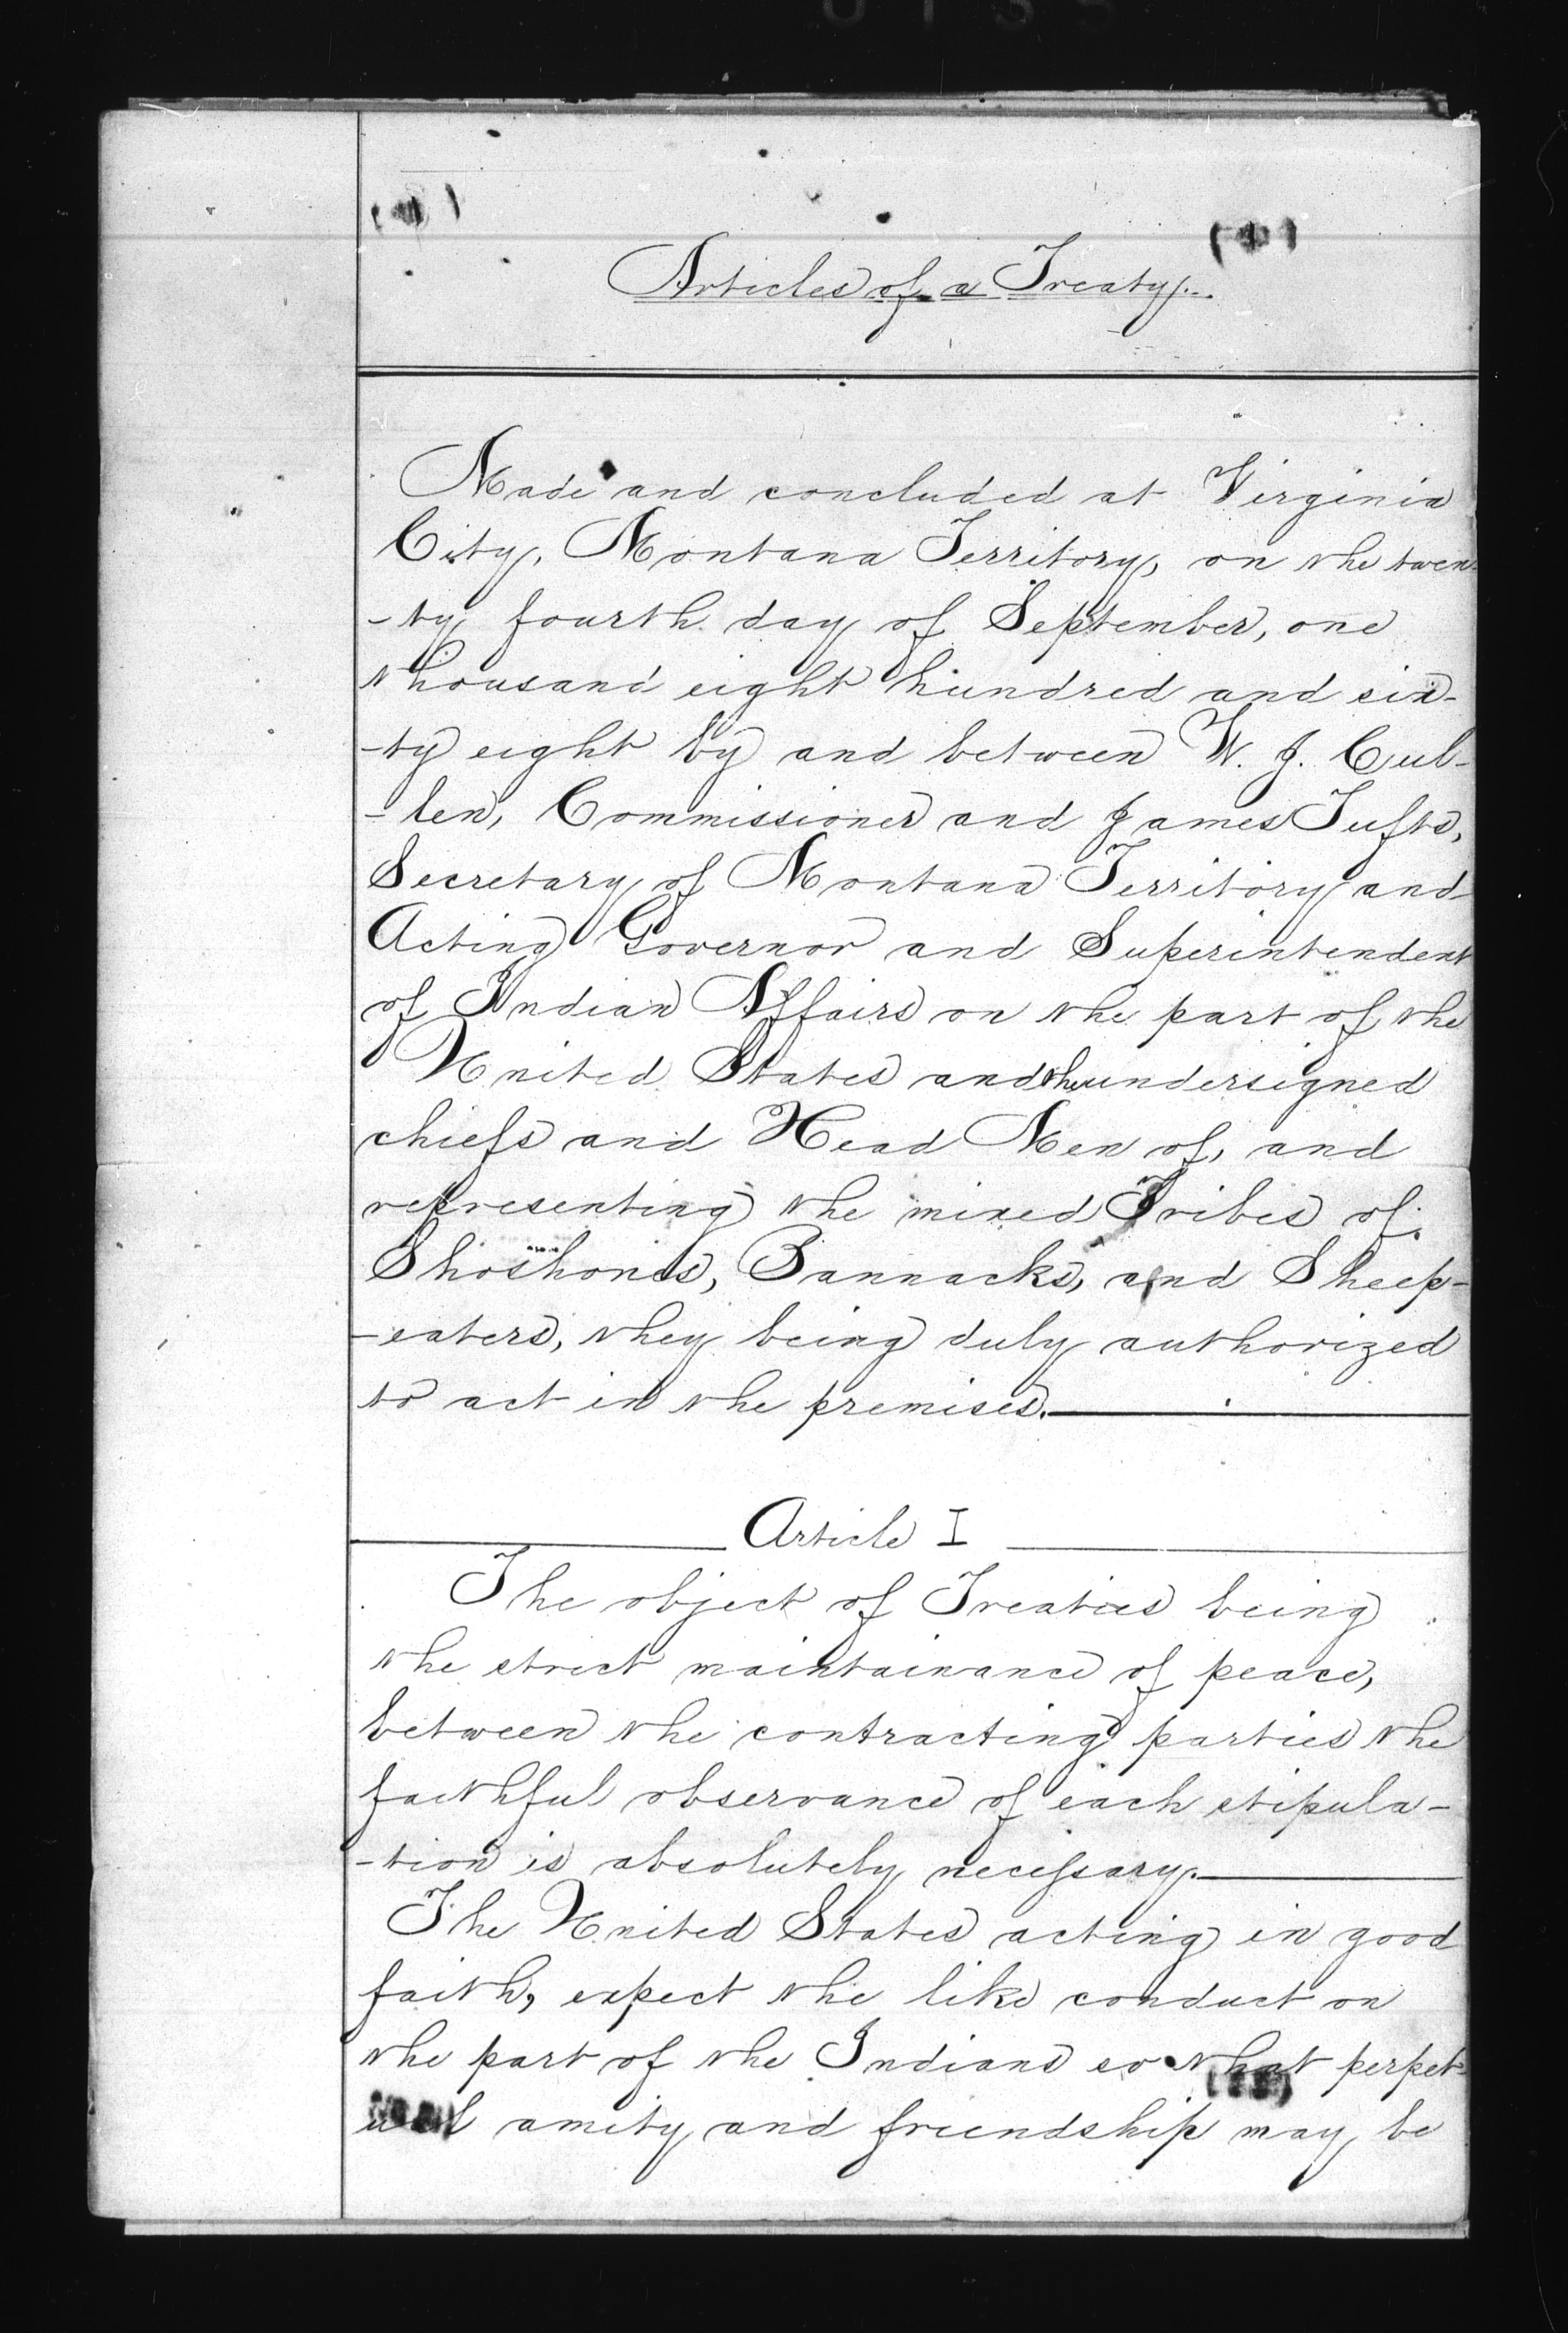 Articles of a Treaty.
Made and concluded at Virginia
City, Montana Territory, on the twen-
-ty fourth day of September, one
thousand eight hundred and six-
-ty eight by and between W. J. Cul-
-len, Commissioner and James Tufts,
Secretary of Montana Territory and
Acting Governor and Superintendent
of Indian Affairs on the part of the
United States and the undersigned
chiefs and Head Men of, and
representing the mixed Tribes of
Shoshones, Bannacks, and Sheep-
-eaters, they being duly authorized
to act in the premises.
Article I
The object of Treaties being
the strict maintainance of peace,
between the contracting parties the
faithful observance of each stipula-
-tion is absolutely necessary.
The United States acting in good
faith, expect the like conduct on
the part of the Indians so that perpet-
ual amity and friendship may be